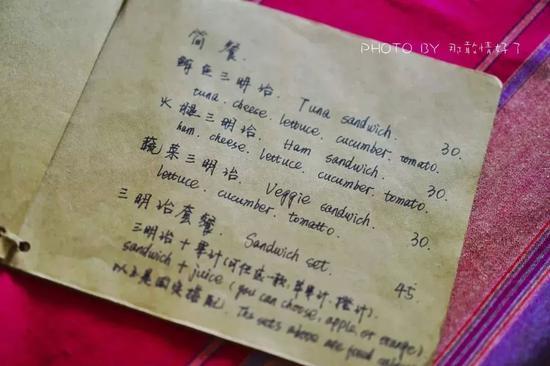 PHOTO BY 那敢情好了
简餐.
三明治. Tuna sandwich. 30.
tuna. cheese. lettuce. cucumber. tomato.
火腿三明治. Ham sandwich. 30.
ham. cheese. lettuce. cucumber. tomato.
蔬菜三明治. Veggie sandwich. 30.
lettuce. cucumber. tomatto.
三明治套餐. Sandwich set. 45.
三明治+果汁(可任选一款,苹果汁.橙汁).
sandwich + juice (you can choose, apple or orange)
以上是固定搭配. The sets above are fixed